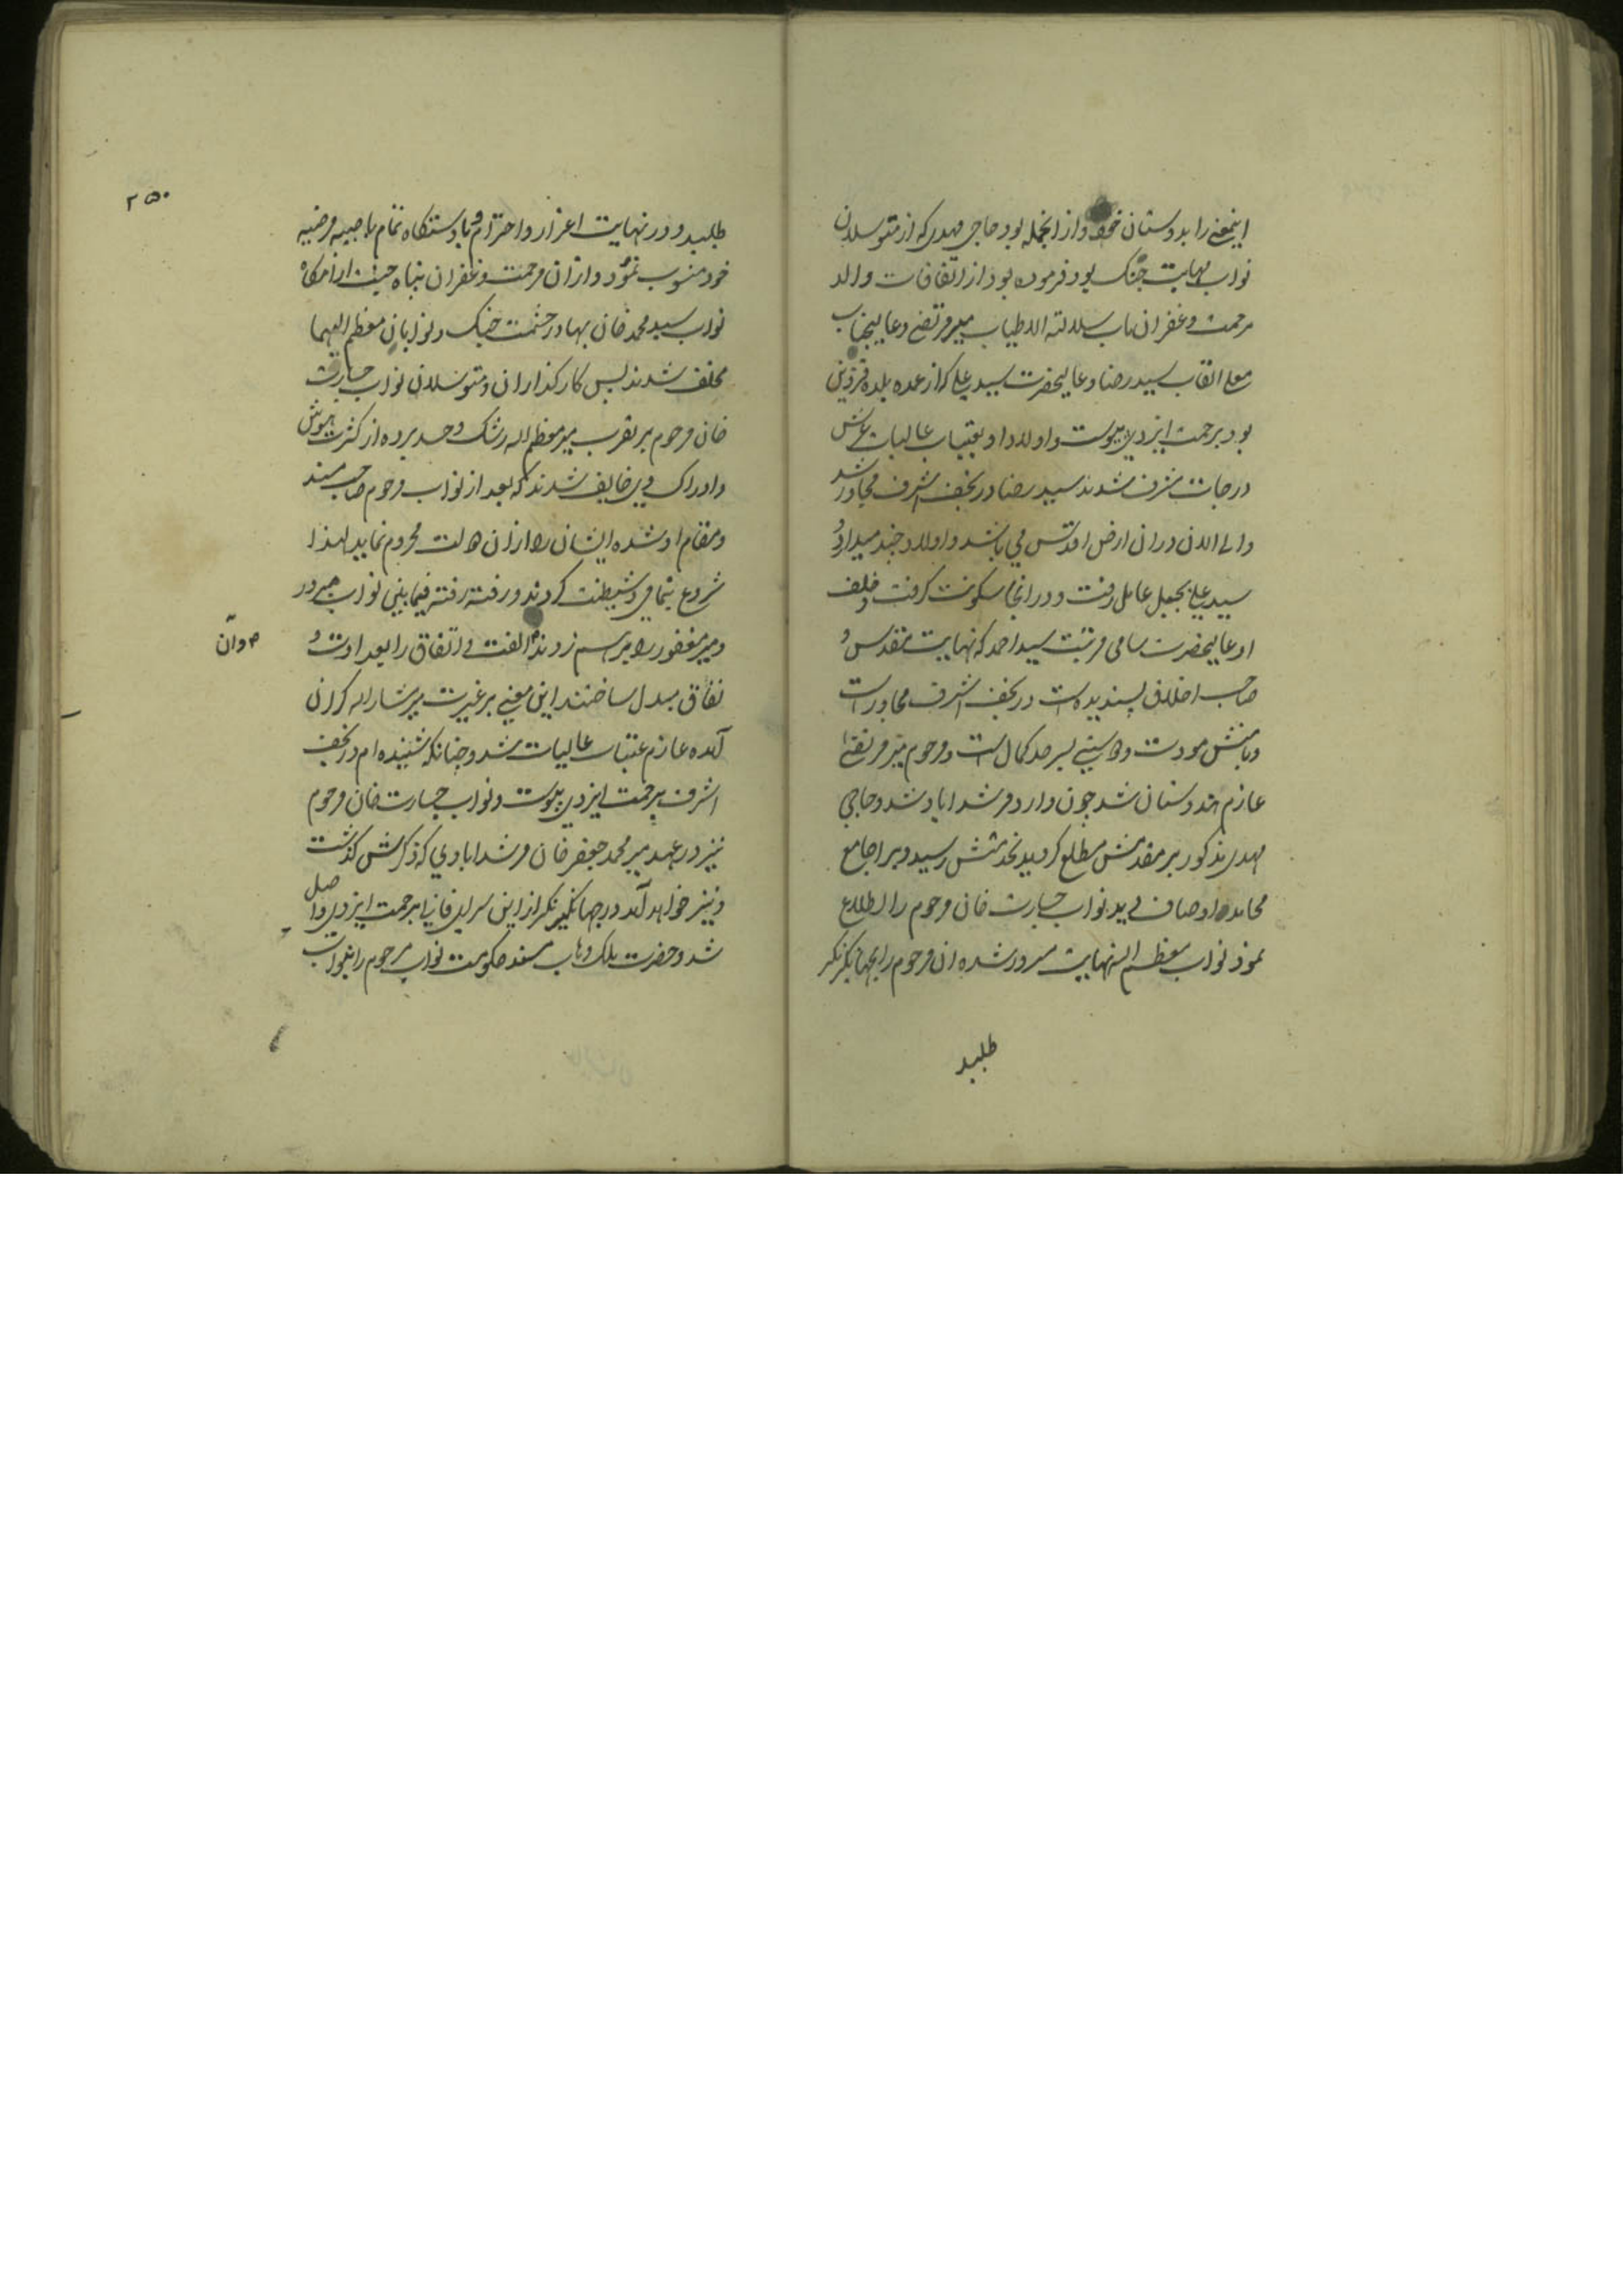 اینمعنی را بدوستان خود و از انجمله بود حاجی مهدی که از متوسلان
نواب مهابت جنگ بود فرموده بود از اتفاقات والد
مرحمت و غفران ماب سلالته الاطیاب میر مرتضی و عالیجناب
معلی القاب سید رضا و عالیحضرت سید علی که از عمده بلده قزوین
بود برحمت ایزدی پیوست و اولاد او بعتبات عالیات عرش
درجات مشرف شدند سید رضا در نجف اشرف مجاور شد
و الی الان دران ارض اقدس می باشد و اولاد چند میدارد و
سید علی بجبل عامل رفت و در انجا سکونت گرفت و خلف
او عالیحضرت سامی مرتبت سید احمد که نهایت مقدس و
صاحب اخلاق پسندیده است در نجف اشرف مجاور است
و بامنش مودت و راستی بسر حد کمال است و مرحوم میر مرتضی
عازم هندوستان شد چون وارد مرشداباد شد و حاجی
مهدی مذکور بر مقدمش مطلع گردید بخدمتش رسید و بر اجامع
محامده اوصاف دید نواب جسارت خان مرحوم را اطلاع
نمود نواب معظم الیه نهایت مسرور شده ان مرحوم را بجهانگیرنگر
طلبید
۲۵۰
طلبید و در نهایت اعزاز و احترام و با دستگاه تمام با صبیه مرضیه
خود منسوب نمود و ازان مرحمت و غفران پناه جنت ارامگاه
نواب سید محمد خان بهادر حشمت جنگ و نوابان معظم الیهما
مخلف شدند پس کارگذاران و متوسلان نواب جسارت
خان مرحوم بر تقرب میر معظم اله رشک و حسد برده از کثرت هوش
و ادراک وی خایف شدند که بعد از نواب مرحوم صاحب مسند
و مقام او شده ایشان را ازان دولت محروم نماید لهذا
شروع بنمامی و شیطنت کردند و رفته رفته فیما بینی نواب مبرور
و میر مغفور را بر هم زدند الفت و اتفاق را بعداوت و
م و آن
نفاق مبدل ساختند این معنی بر غیرت میر مشار اله گران
آمده عازم عتبات عالیات شد و چنانکه شنیده ام در نجف
اشرف برحمت ایزدی پیوست و نواب جسارت خان مرحوم
نیز در عهد میر محمد جعفر خان مرشدابادی که ذکرش گذشت
و نیز خواهد آمد در جهانگیرنگر از این سرای فانی برحمت ایزدی واصل
شد و حضرت ملک وهاب مسند حکومت نواب مرحوم را بنواب